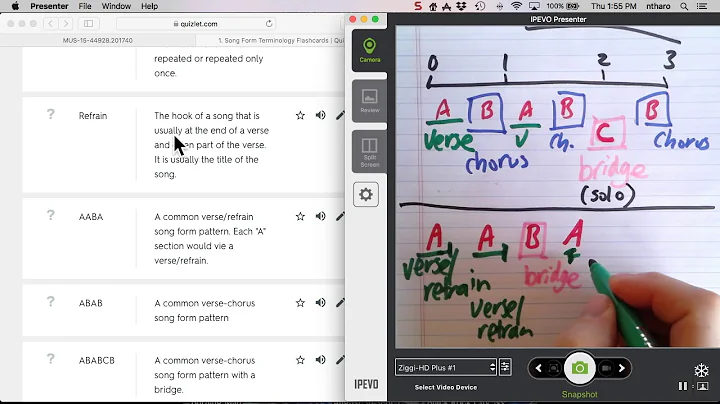 Presenter File Edit Window Help
S 100% Thu 1:55 PM ntharo
quizlet.com
MUS-15-44928.201740
1. Song Form Terminology Flashcards | Qui
repeated or repeated only
once.
? Refrain
The hook of a song that is
usually at the end of a verse
and part of the verse.
It is usually the title of the
song.
? AABA
A common verse/refrain
song form pattern. Each "A"
section would vie a
verse/refrain.
? ABAB
A common verse-chorus
song form pattern
? ABABCB
A common verse-chorus
song form pattern with a
bridge.
IPEVO Presenter
Camera
Review
Split
Screen
IPEVO
0 1 2 3
A B A B C B
verse chorus v ch. bridge chorus
(solo)
A A B A
verse/
refrain
verse/
refrain
bridge
Ziggi-HD Plus #1
Select Video Device
Snapshot